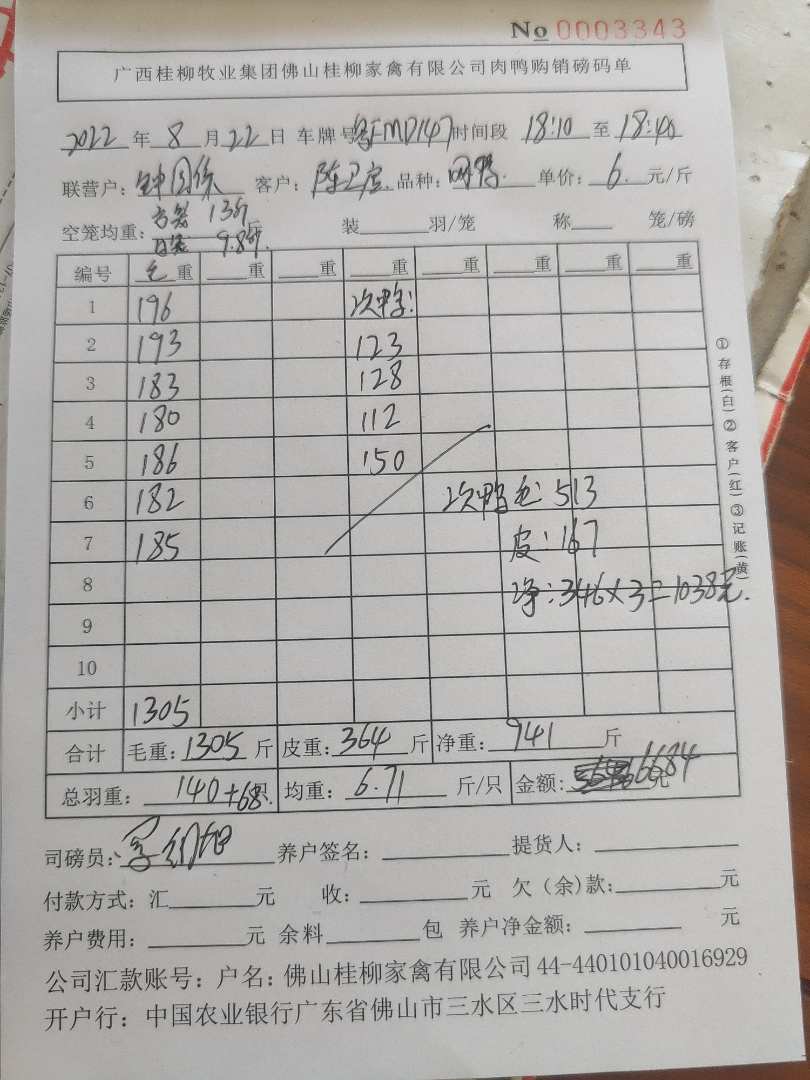 No 0003343
广西桂柳牧业集团佛山桂柳家禽有限公司肉鸭购销磅码单
2022 年 8 月 22 日 车牌号 粤FMD147 时间段 18:10 至 18:40
联营户: 钟 客户: 陈卫 品种: 肉鸭 单价: 6 元/斤
13斤
空笼均重: 9.8斤 装 羽/笼 称 笼/磅
编号 毛重 重 重 重 重 重 重 重
1 196 次鸭:
2 193 123
3 183 128
4 180 112
5 186 150
6 182 次鸭毛: 513
7 185 皮: 167
8 净: 346×3=1038元.
9
10
小计 1305
合计 毛重: 1305 斤 皮重: 364 斤 净重: 941 斤
总羽重: 140+68只 均重: 6.71 斤/只 金额: 6684 元
司磅员: 养户签名: 提货人:
付款方式: 汇 元 收: 元 欠(余)款: 元
养户费用: 元 余料 包 养户净金额: 元
公司汇款账号: 户名: 佛山桂柳家禽有限公司 44-440101040016929
开户行: 中国农业银行广东省佛山市三水区三水时代支行
①存根(白)②客户(红)③记账(黄)